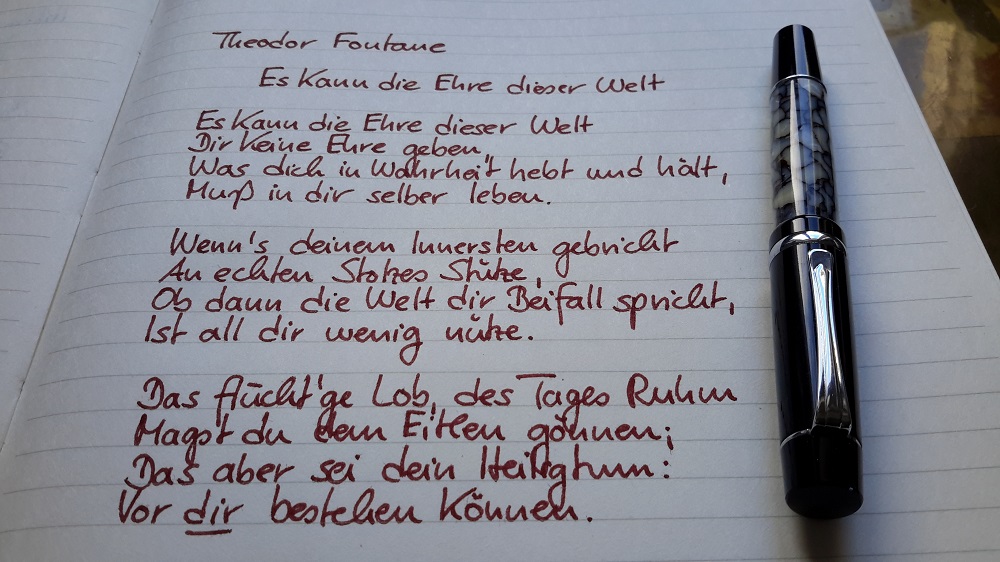 Theodor Fontane
Es Kann die Ehre dieser Welt
Es Kann die Ehre dieser Welt
Dir Keine Ehre geben,
Was dich in Wahrheit hebt und hält,
Muß in dir selber leben.
Wenn's deinem Innersten gebricht
An echten Stolzes Stütze,
Ob dann die Welt dir Beifall spricht,
Ist all dir wenig nütze.
Das flücht'ge Lob, des Tages Ruhm
Magst du dem Eitlen gönnen;
Das aber sei dein Heiligtum:
Vor dir bestehen Können.